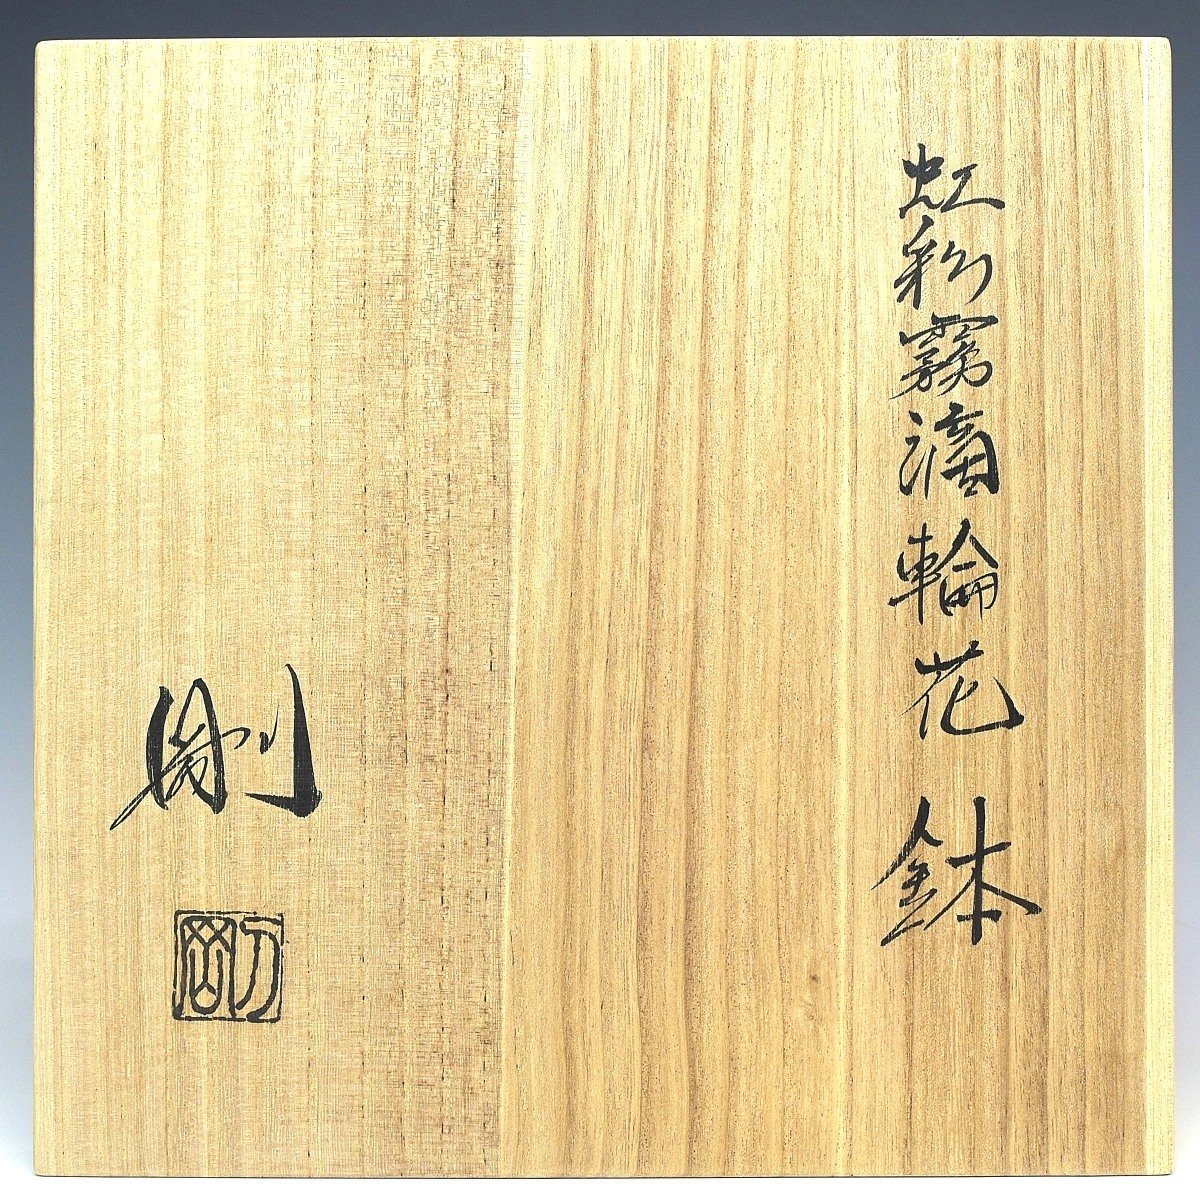 虹彩霧滴輪花鉢
剛
剛